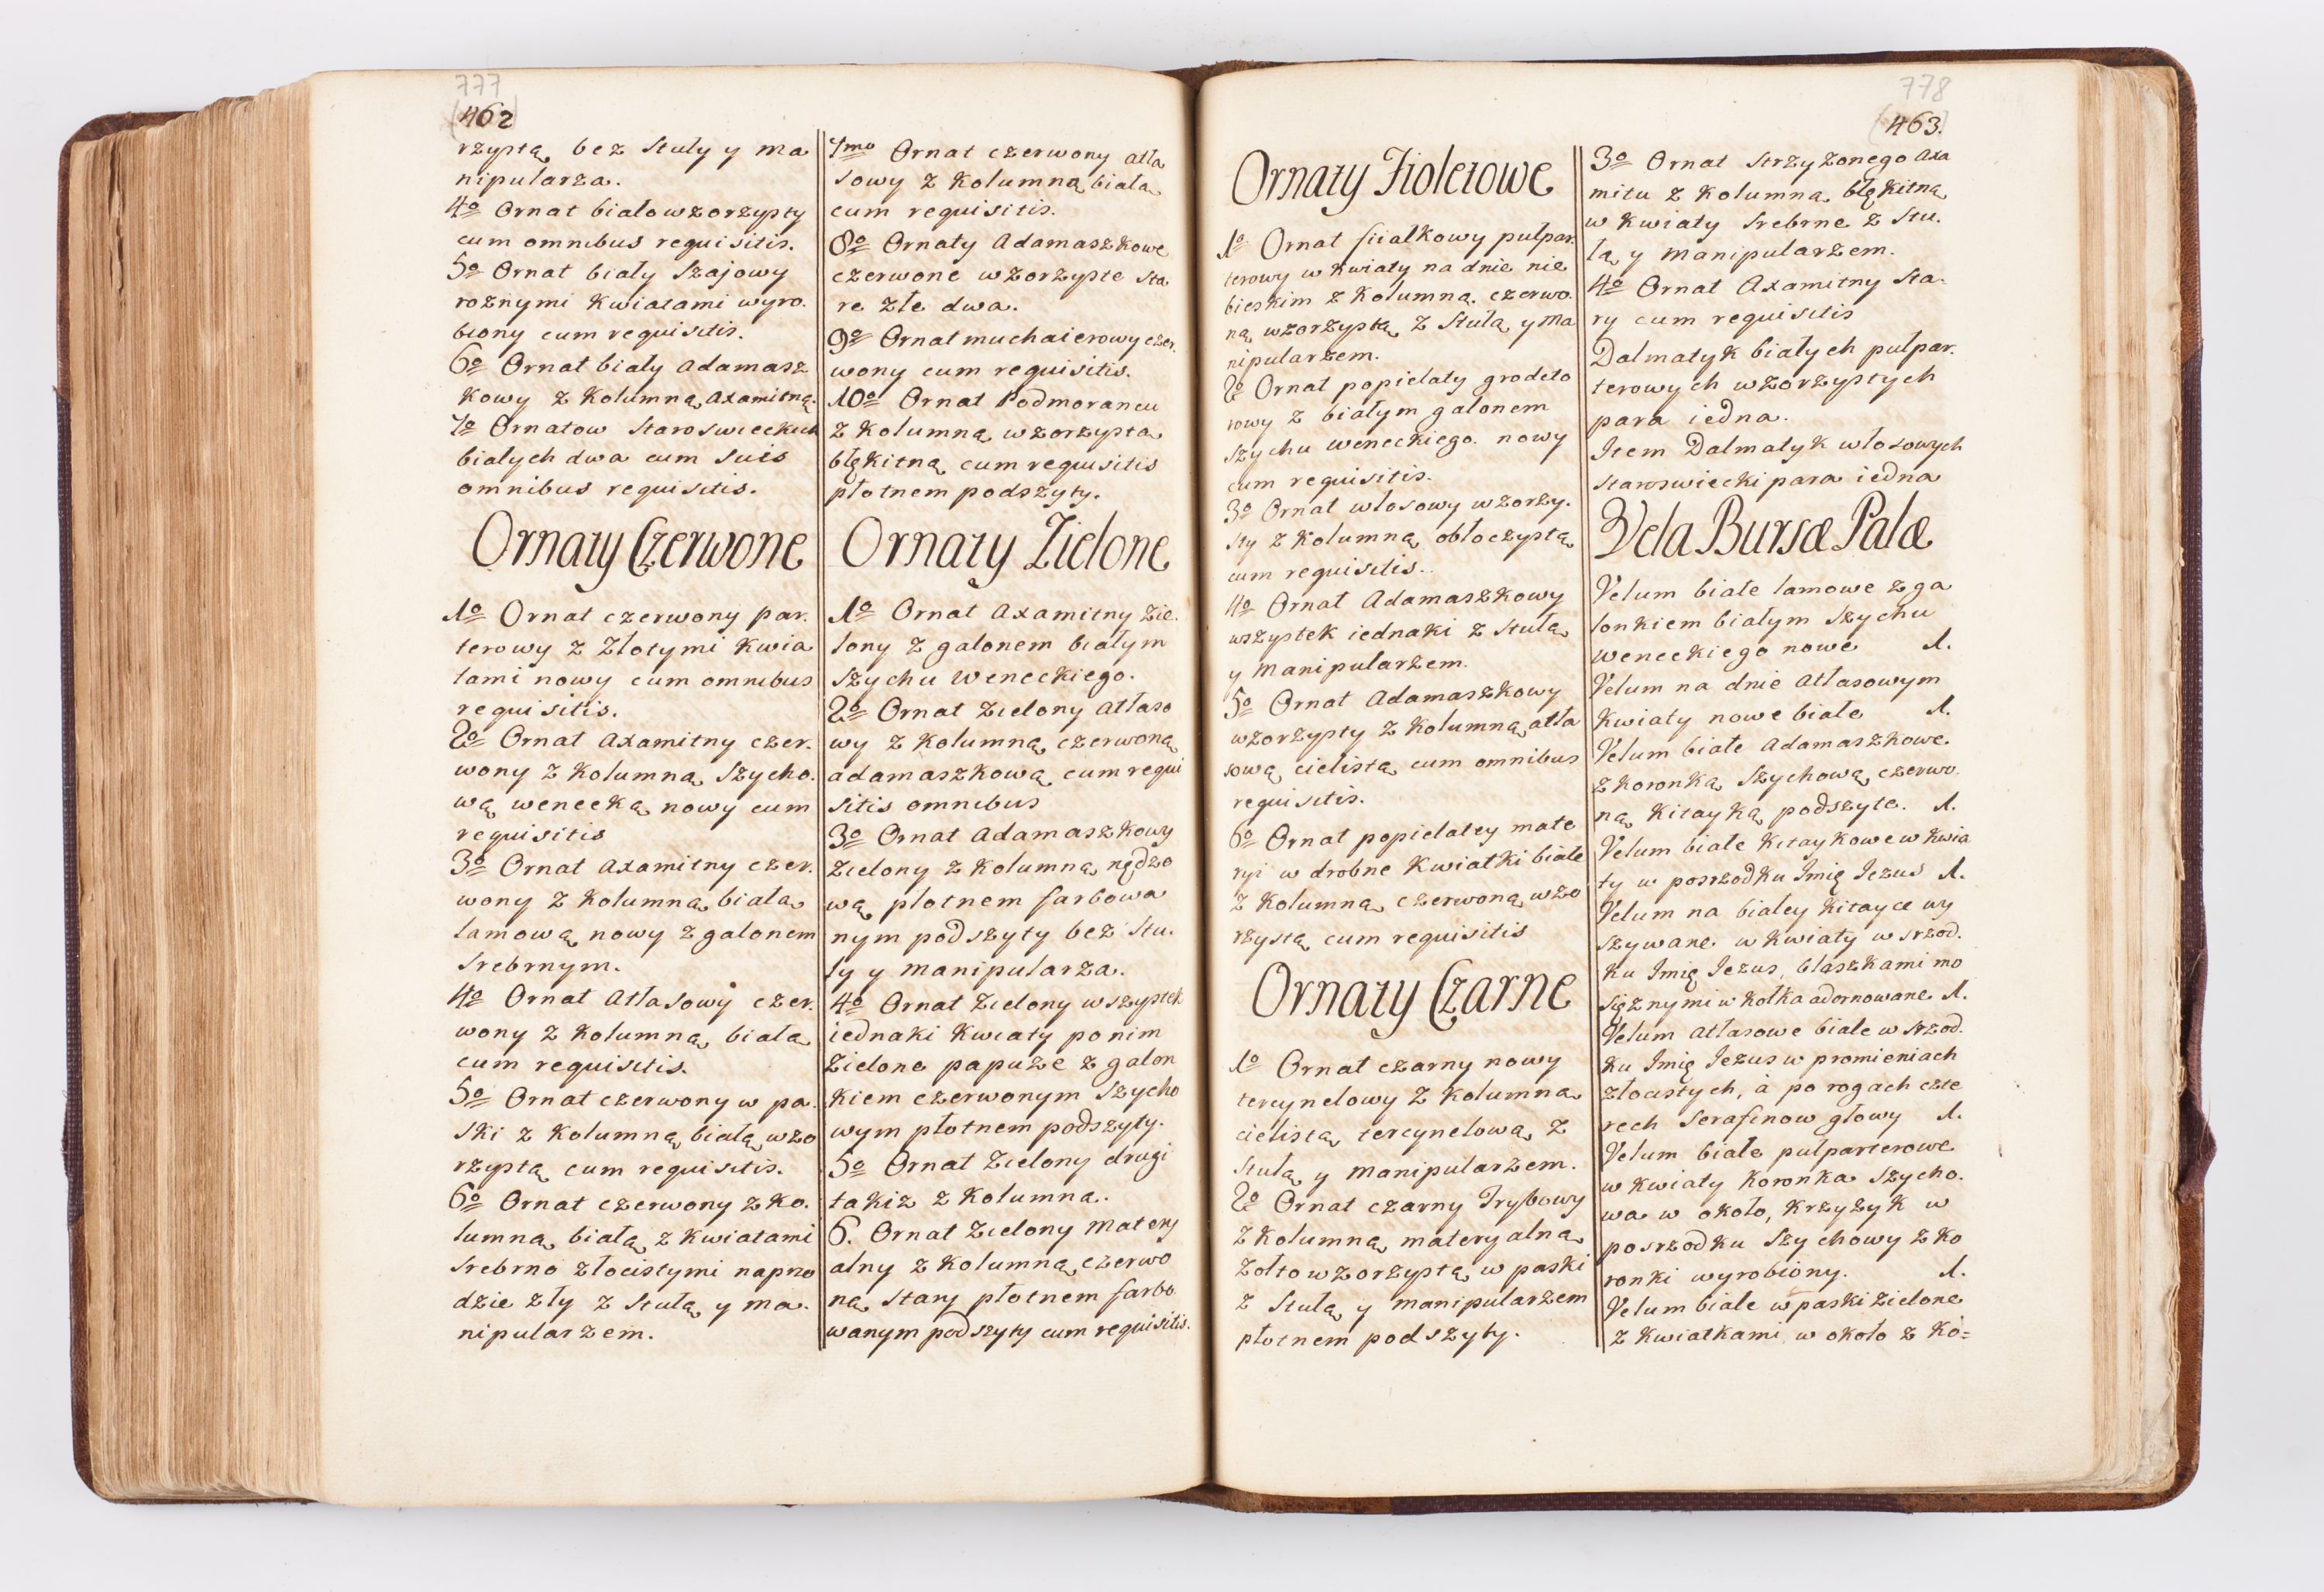 777
462
rzystą bez Stuły y ma
nipularza.
4o Ornat białowzorzysty
cum omnibus requisitis.
5o Ornat biały Szajowy
roznymi Kwiatami wyro.
biony cum requisitis.
6o Ornat biały Adamasz
kowy z Kolumną Axamitną.
7o Ornatow Staroswieckich
białych dwa cum suis
omnibus requisitis.
Ornaty Czerwone
1o Ornat czerwony par.
terowy z Złotymi Kwia
tami nowy cum omnibus
requisitis.
2o Ornat Axamitny czer.
wony z Kolumną Szycho.
wą wenecką nowy cum
requisitis
3o Ornat Axamitny czer.
wony z Kolumną białą
lamową nowy z galonem
Srebrnym.
4o Ornat Atłasowy czer.
wony z Kolumną białą
cum requisitis.
5o Ornat czerwony w pa.
ski z Kolumną białą wzo
rzystą cum requisitis.
6o Ornat czerwony z ko.
lumną białą z Kwiatami
Srebrno złocistymi naprzo
dzie zły z Stułą y ma.
nipularzem.
7mo Ornat czerwony atła
sowy z Kolumną białą
cum requisitis.
8o Ornaty Adamaszkowe
czerwone wzorzyste sta
re złe dwa.
9o Ornat muchaierowy czer.
wony cum requisitis.
10o Ornat Podmorancu
z Kolumną wzorzysta
błękitną cum requisitis
płotnem podszyty.
Ornaty Zielone
1o Ornat Axamitny Zie.
lony z galonem białym
szychu weneckiego.
2o Ornat Zielony Atłaso
wy z Kolumną czerwoną
adamaszkową cum requi
sitis omnibus
3o Ornat Adamaszkowy
Zielony z Kolumną nędzo
wą płotnem farbowa
nym podszyty bez Stu.
ły y manipularza.
4o Ornat Zielony wszystek
iednaki Kwiaty po nim
Zielone papuże z galon
kiem czerwonym Szycho
wym płotnem podszyty.
5o Ornat Zielony drugi
takiz z Kolumna.
6. Ornat Zielony matery
alny z Kolumną czerwo
ną Stary płotnem farbo
wanym podszyty cum requisitis.
778
463.
Ornaty Fioletowe
1o Ornat fiialkowy pulpar.
terowy w kwiaty na dnie nie
bieskim z Kolumną czerwo.
ną wzorzystą z Stułą y Ma
nipularzem.
2o Ornat popielaty grodeto
rowy z białym galonem
szychu weneckiego nowy
cum requisitis.
3o Ornat włosowy wzorzy.
sty z Kolumną obłoczystą
cum requisitis.
4o Ornat Adamaszkowy
wszystek iednaki z Stułą
y Manipularzem.
5o Ornat Adamaszkowy
wzorzysty z Kolumną atła
sową cielistą cum omnibus
requisitis.
6o Ornat popielatey mate
ryi w drobne Kwiatki białe
z Kolumną czerwoną wzo
rzystą cum requisitis
Ornaty Czarne
1o Ornat czarny nowy
tercynelowy z Kolumną
cielistą tercynelową z
Stułą y manipularzem.
2o Ornat czarny Trybowy
z Kolumną materyalną
Zołto wzorzystą w paski
z Stułą y manipularzem
płotnem podszyty.
3o Ornat Strzyzonego Axa
mitu z Kolumną błękitną
w Kwiaty Srebrne z Stu.
łą y Manipularzem.
4o Ornat Axamitny Sta.
ry cum requisitis
Dalmatyk białych pulpar.
terowych wzorzystych
para iedna.
Item Dalmatyk włosowych
staroswiecki para iedna
Vela Bursæ Palæ
Velum białe lamowe z ga
lonkiem białym Szychu
weneckiego nowe 1.
Velum na dnie Atłasowym
Kwiaty nowe białe 1.
Velum białe Adamaszkowe.
z koronką Szychową czerwo.
ną Kitayką podszyte. 1.
Velum białe Kitaykowe w kwia
ty w posrzodku Imię Iezus 1.
Velum na białey Kitayce wy
szywane w kwiaty w srzod.
ku Imię Iezus, blaszkami mo
siężnymi w Kołka adornowane 1.
Velum Atłasowe białe w Srzod.
ku Imię Iezus w promieniach
złocistych, à po rogach czte
rech Serafinow głowy 1.
Velum białe pulparterowe
w kwiaty Koronka Szycho.
wa w około, Krzyzyk w
posrzodku Szychowy z ko
ronki wyrobiony. 1.
Velum białe w paski zielone
z Kwiatkami w około z Ko=